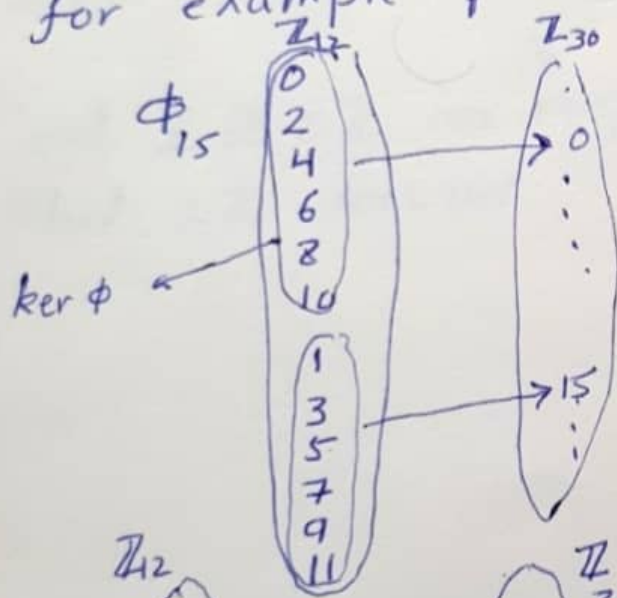 for example
ℤ12 ℤ30
Φ15
0
2
4
6
8
10
ker φ
1
3
5
7
9
11
0
15
ℤ12 ℤ